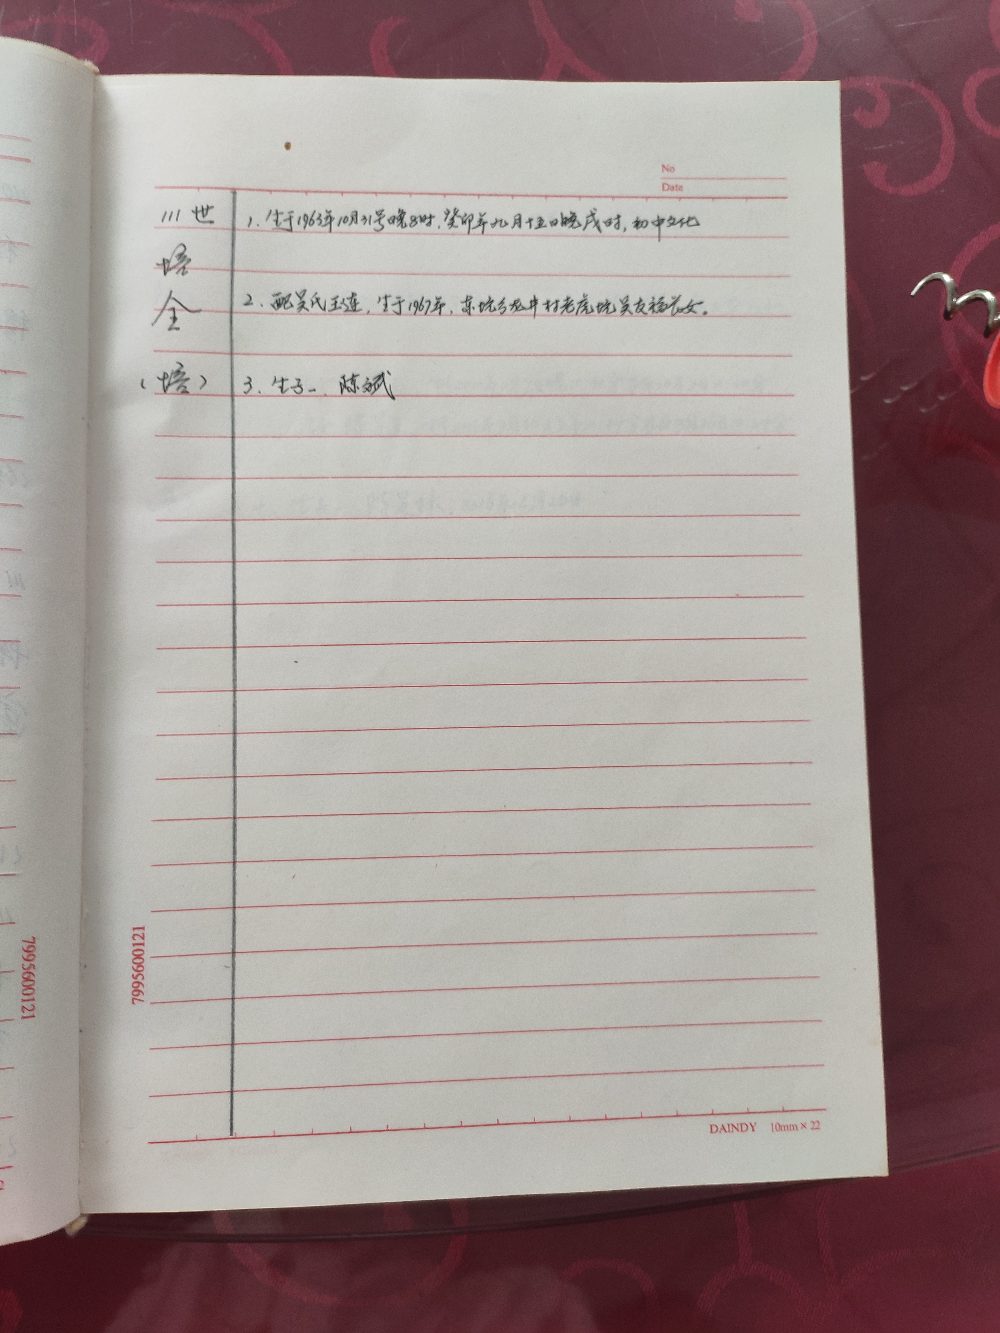 No
Date
111世
培
全
(培)
1、生于1963年10月31号晚8时,癸卯年九月十五日晚戌时,初中文化
2、配吴氏玉莲,生于1967年,东坑乡龙井村老虎坑吴友福长女。
3、生子一、陈斌
7995600121
7995600121
DAINDY 10mm×22